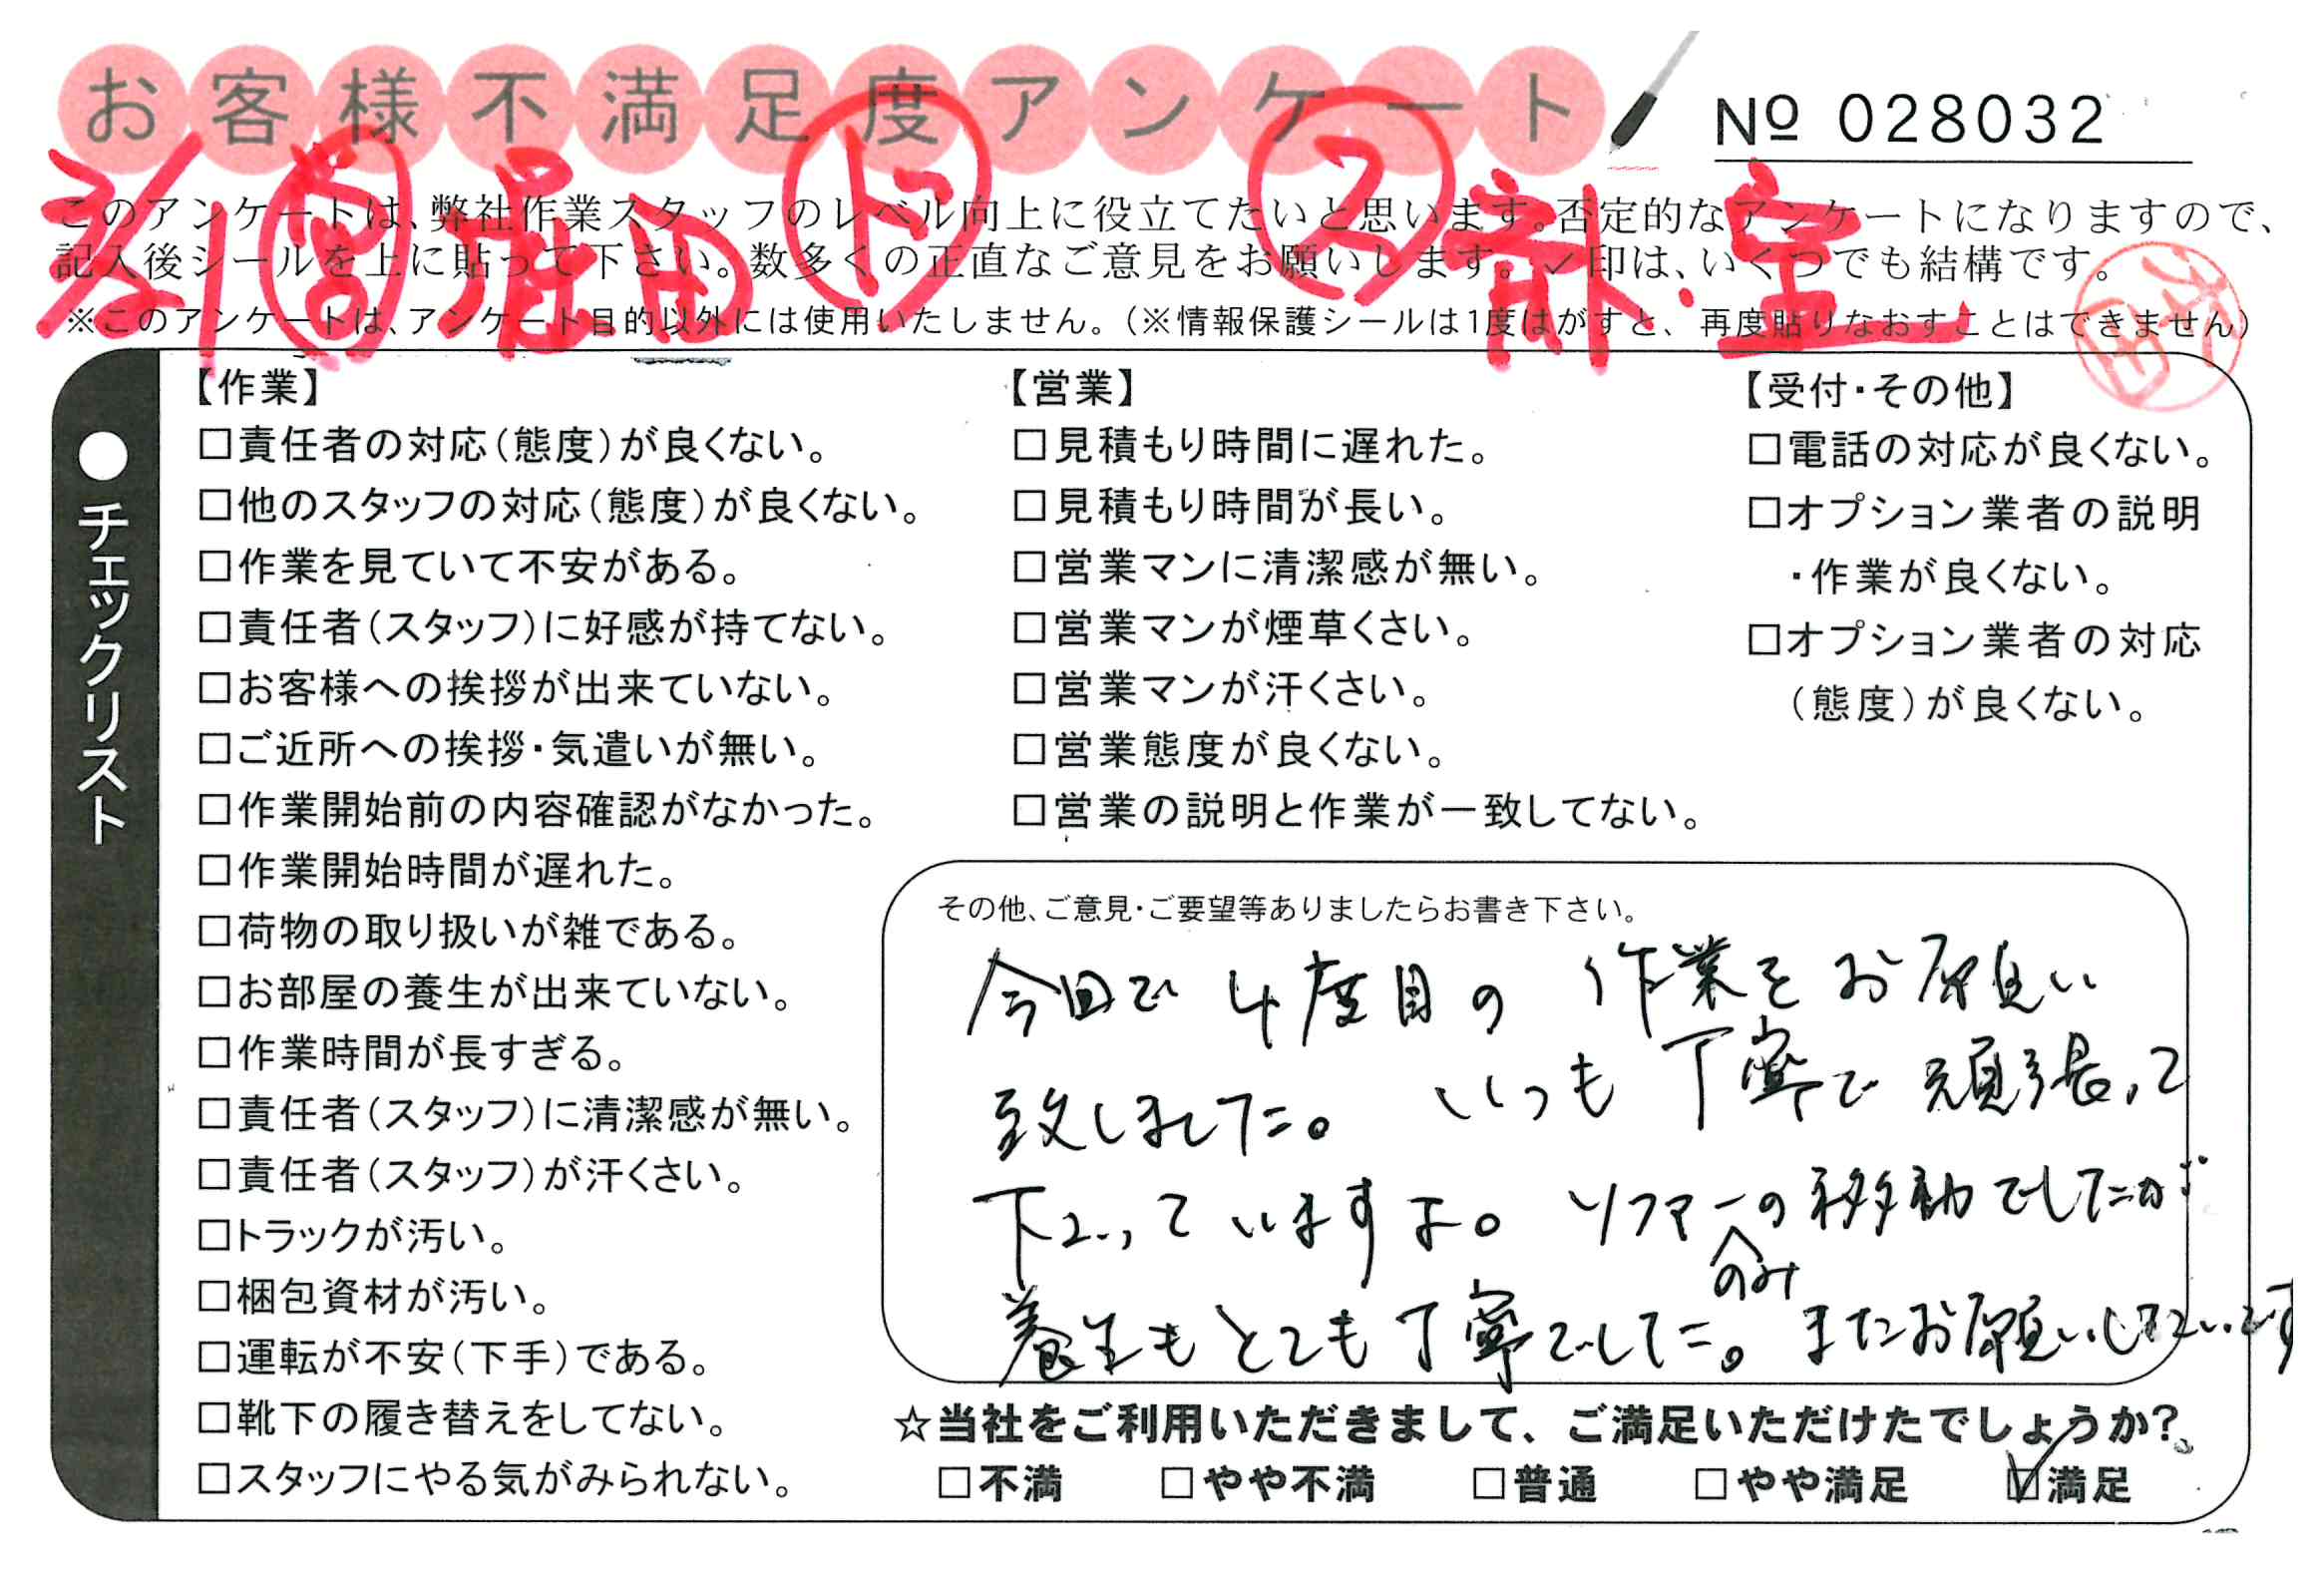 お客様不満足度アンケート
№ 028032
このアンケートは、弊社作業スタッフのレベル向上に役立てたいと思います。否定的なアンケートになりますので、
記入後シールを上に貼って下さい。数多くの正直なご意見をお願いします。✓印は、いくつでも結構です。
※このアンケートは、アンケート目的以外には使用いたしません。(※情報保護シールは1度はがすと、再度貼りなおすことはできません)
3/1 営 堀田 ド ス 宝
●チェックリスト
【作業】
□責任者の対応(態度)が良くない。
□他のスタッフの対応(態度)が良くない。
□作業を見ていて不安がある。
□責任者(スタッフ)に好感が持てない。
□お客様への挨拶が出来ていない。
□ご近所への挨拶・気遣いが無い。
□作業開始前の内容確認がなかった。
□作業開始時間が遅れた。
□荷物の取り扱いが雑である。
□お部屋の養生が出来ていない。
□作業時間が長すぎる。
□責任者(スタッフ)に清潔感が無い。
□責任者(スタッフ)が汗くさい。
□トラックが汚い。
□梱包資材が汚い。
□運転が不安(下手)である。
□靴下の履き替えをしてない。
□スタッフにやる気がみられない。
【営業】
□見積もり時間に遅れた。
□見積もり時間が長い。
□営業マンに清潔感が無い。
□営業マンが煙草くさい。
□営業マンが汗くさい。
□営業態度が良くない。
□営業の説明と作業が一致してない。
【受付・その他】
□電話の対応が良くない。
□オプション業者の説明
・作業が良くない。
□オプション業者の対応
(態度)が良くない。
その他、ご意見・ご要望等ありましたらお書き下さい。
今回で4度目の作業をお願い
致しました。いつも丁寧で頑張って
下さっていますよ。ソファーのみの移動でしたが
養生もとても丁寧でした。またお願いしたいです
☆当社をご利用いただきまして、ご満足いただけたでしょうか?
□不満 □やや不満 □普通 □やや満足 ☑満足